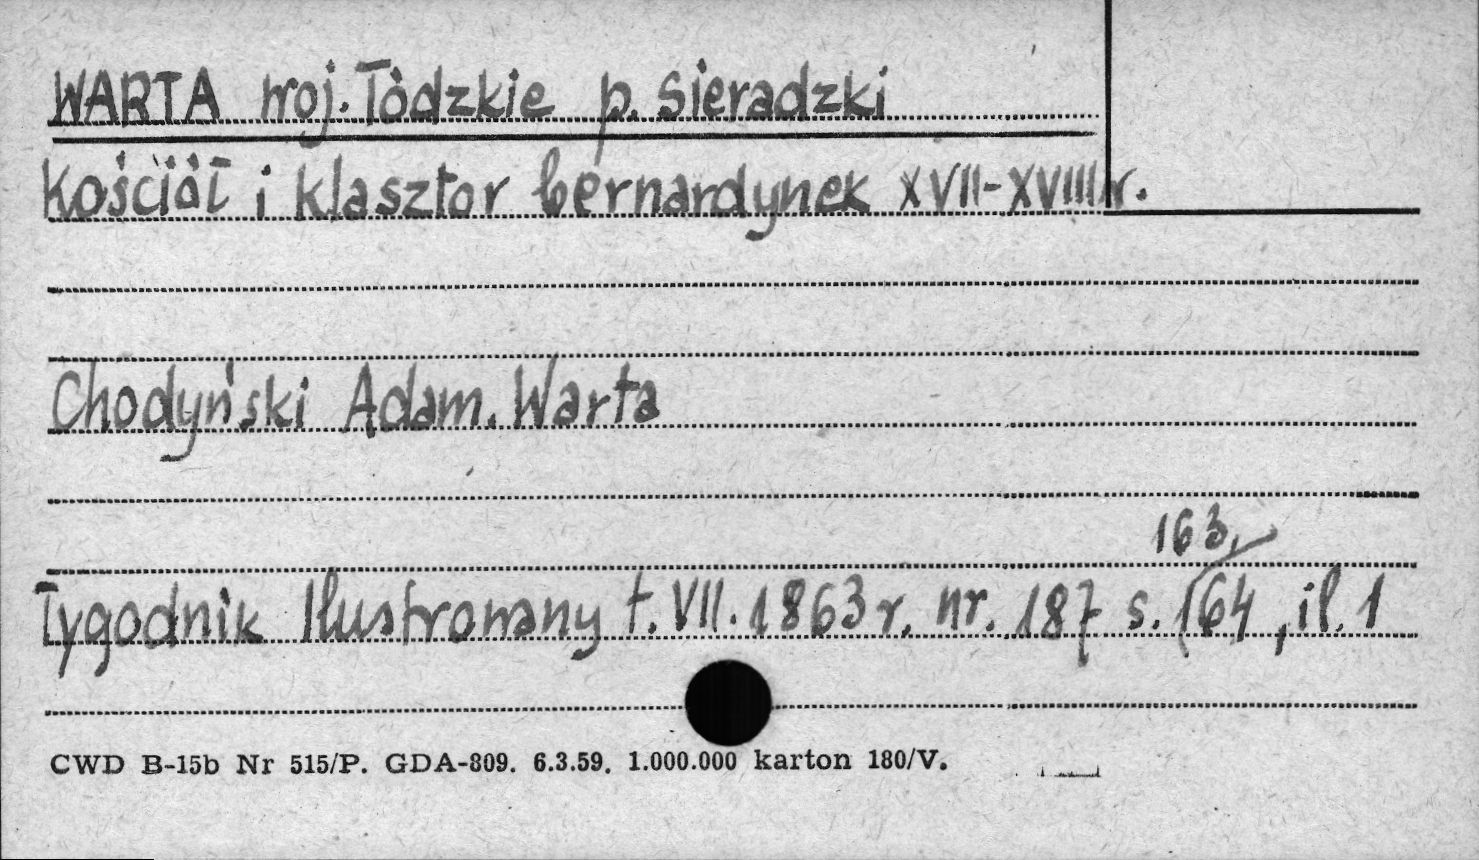 WARTA woj. Łódzkie p. Sieradzki
Kościół i klasztor bernardynek XVII-XVIII r.
Chodyński Adam. Warta
163,
Tygodnik Ilustrowany t. VII. 1863 r. nr. 187 s. 164, il. 1
CWD B-15b Nr 515/P. GDA-809. 6.3.59. 1.000.000 karton 180/V.